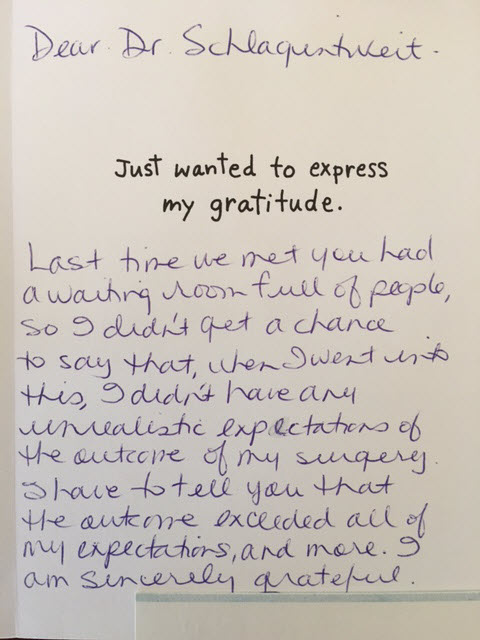 Dear Dr. Schlaquntweit.
Just wanted to express
my gratitude.
Last time we met you had
a waiting room full of people,
so I didn't get a chance
to say that, when I went into
this, I didn't have any
unrealistic expectations of
the outcome of my surgery.
I have to tell you that
the outcome exceeded all of
my expectations, and more. I
am sincerely grateful.